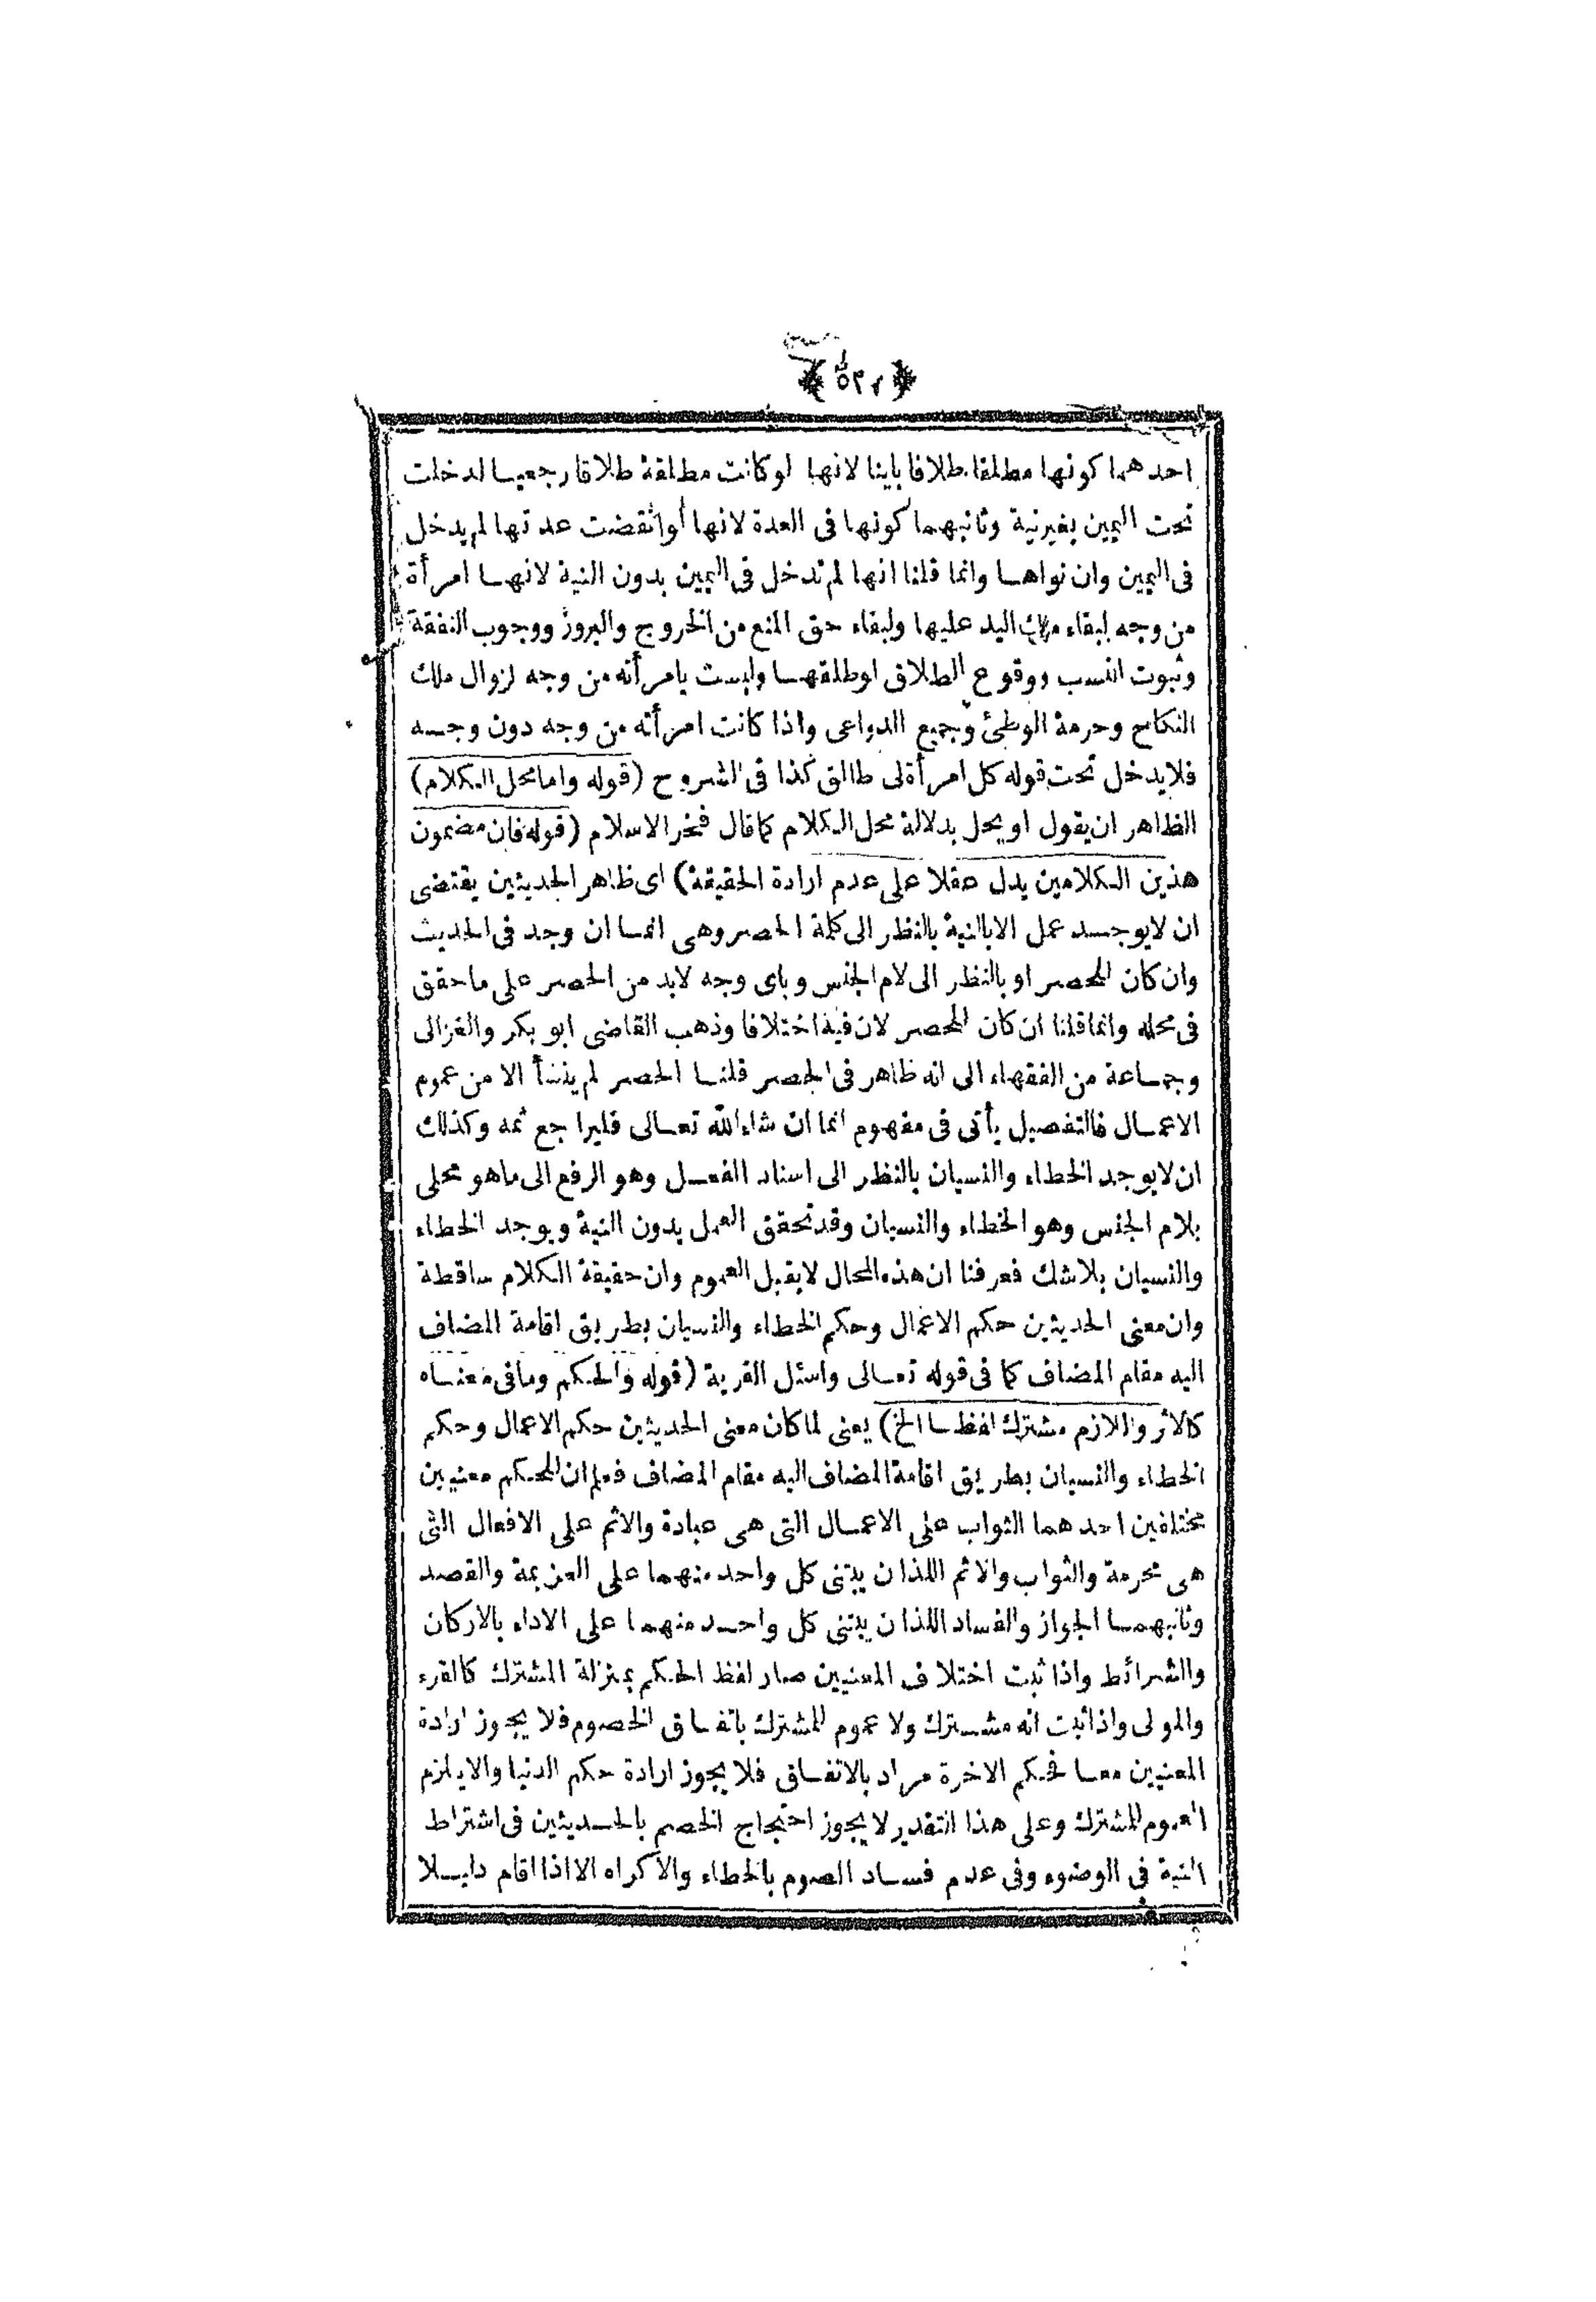 احدهما كونها مطلقا طلاقا باينا لانها لوكانت مطلقة طلاقا رجعيا لدخلت
تحت اليمين بغيرنية وثانيهما كونها فى العدة لانها لوانقضت عدتها لم يدخل
فى اليمين وان نواها وانما قلنا انها لم تدخل فى اليمين بدون النية لانها امرأة
من وجه لبقاء ملك اليد عليها ولبقاء حق المنع من الخروج والبروز ووجوب النفقة
وثبوت النسب ووقوع الطلاق لوطلقها وليست بامرأته من وجه لزوال ملك
النكاح وحرمة الوطئ وجميع الدواعى واذا كانت امرأته من وجه دون وجه
فلايدخل تحت قوله كل امرأة لى طالق كذا فى الشروح (قوله وامامحل الكلام)
الظاهر ان يقول او يحل بدلالة محل الكلام كما قال فخر الاسلام (قوله فان مضمون
هذين الكلامين يدل عقلا على عدم ارادة الحقيقة) اى ظاهر الحديثين يقتضى
ان لايوجد عمل الابالنية بالنظر الى كلمة الحصر وهى انما ان وجد فى الحديث
وان كان للحصر او بالنظر الى لام الجنس وباى وجه لابد من الحصر على ماحقق
فى محله وانماقلنا ان كان للحصر لان فيه اختلافا وذهب القاضى ابو بكر والغزالى
وجماعة من الفقهاء الى انه ظاهر فى الحصر قلنا الحصر لم ينشأ الا من عموم
الاعمال فالتفصيل يأتى فى مفهوم انما ان شاء الله تعالى فليراجع ثمه وكذلك
ان لايوجد الخطاء والنسيان بالنظر الى اسناد الفعل وهو الرفع الى ماهو محلى
بلام الجنس وهو الخطاء والنسيان وقد تحقق العمل بدون النية ويوجد الخطاء
والنسيان بلاشك فعرفنا ان هذه المحال لايقبل العموم وان حقيقة الكلام ساقطة
وان معنى الحديثين حكم الاعمال وحكم الخطاء والنسيان بطريق اقامة المضاف
اليه مقام المضاف كما فى قوله تعالى واسئل القرية (قوله والحكم ومافى معناه
كالاثر واللازم مشترك لفظا الخ) يعنى لماكان معنى الحديثين حكم الاعمال وحكم
الخطاء والنسيان بطريق اقامة المضاف اليه مقام المضاف فعلم ان للحكم معنيين
مختلفين احدهما الثواب على الاعمال التى هى عبادة والاثم على الافعال التى
هى محرمة والثواب والاثم اللذان يبتنى كل واحد منهما على العزيمة والقصد
وثانيهما الجواز والفساد اللذان يبتنى كل واحد منهما على الاداء بالاركان
والشرائط واذا ثبت اختلاف المعنيين صار لفظ الحكم بمنزلة المشترك كالقرء
والمولى واذا ثبت انه مشترك ولا عموم للمشترك باتفاق الخصوم فلا يجوز ارادة
المعنيين معا فحكم الاخرة مراد بالاتفاق فلا يجوز ارادة حكم الدنيا والايلزم
العموم للمشترك وعلى هذا التقدير لايجوز احتجاج الخصم بالحديثين فى اشتراط
النية فى الوضوء وفى عدم فساد الصوم بالخطاء والاكراه الا اذا اقام دليلا